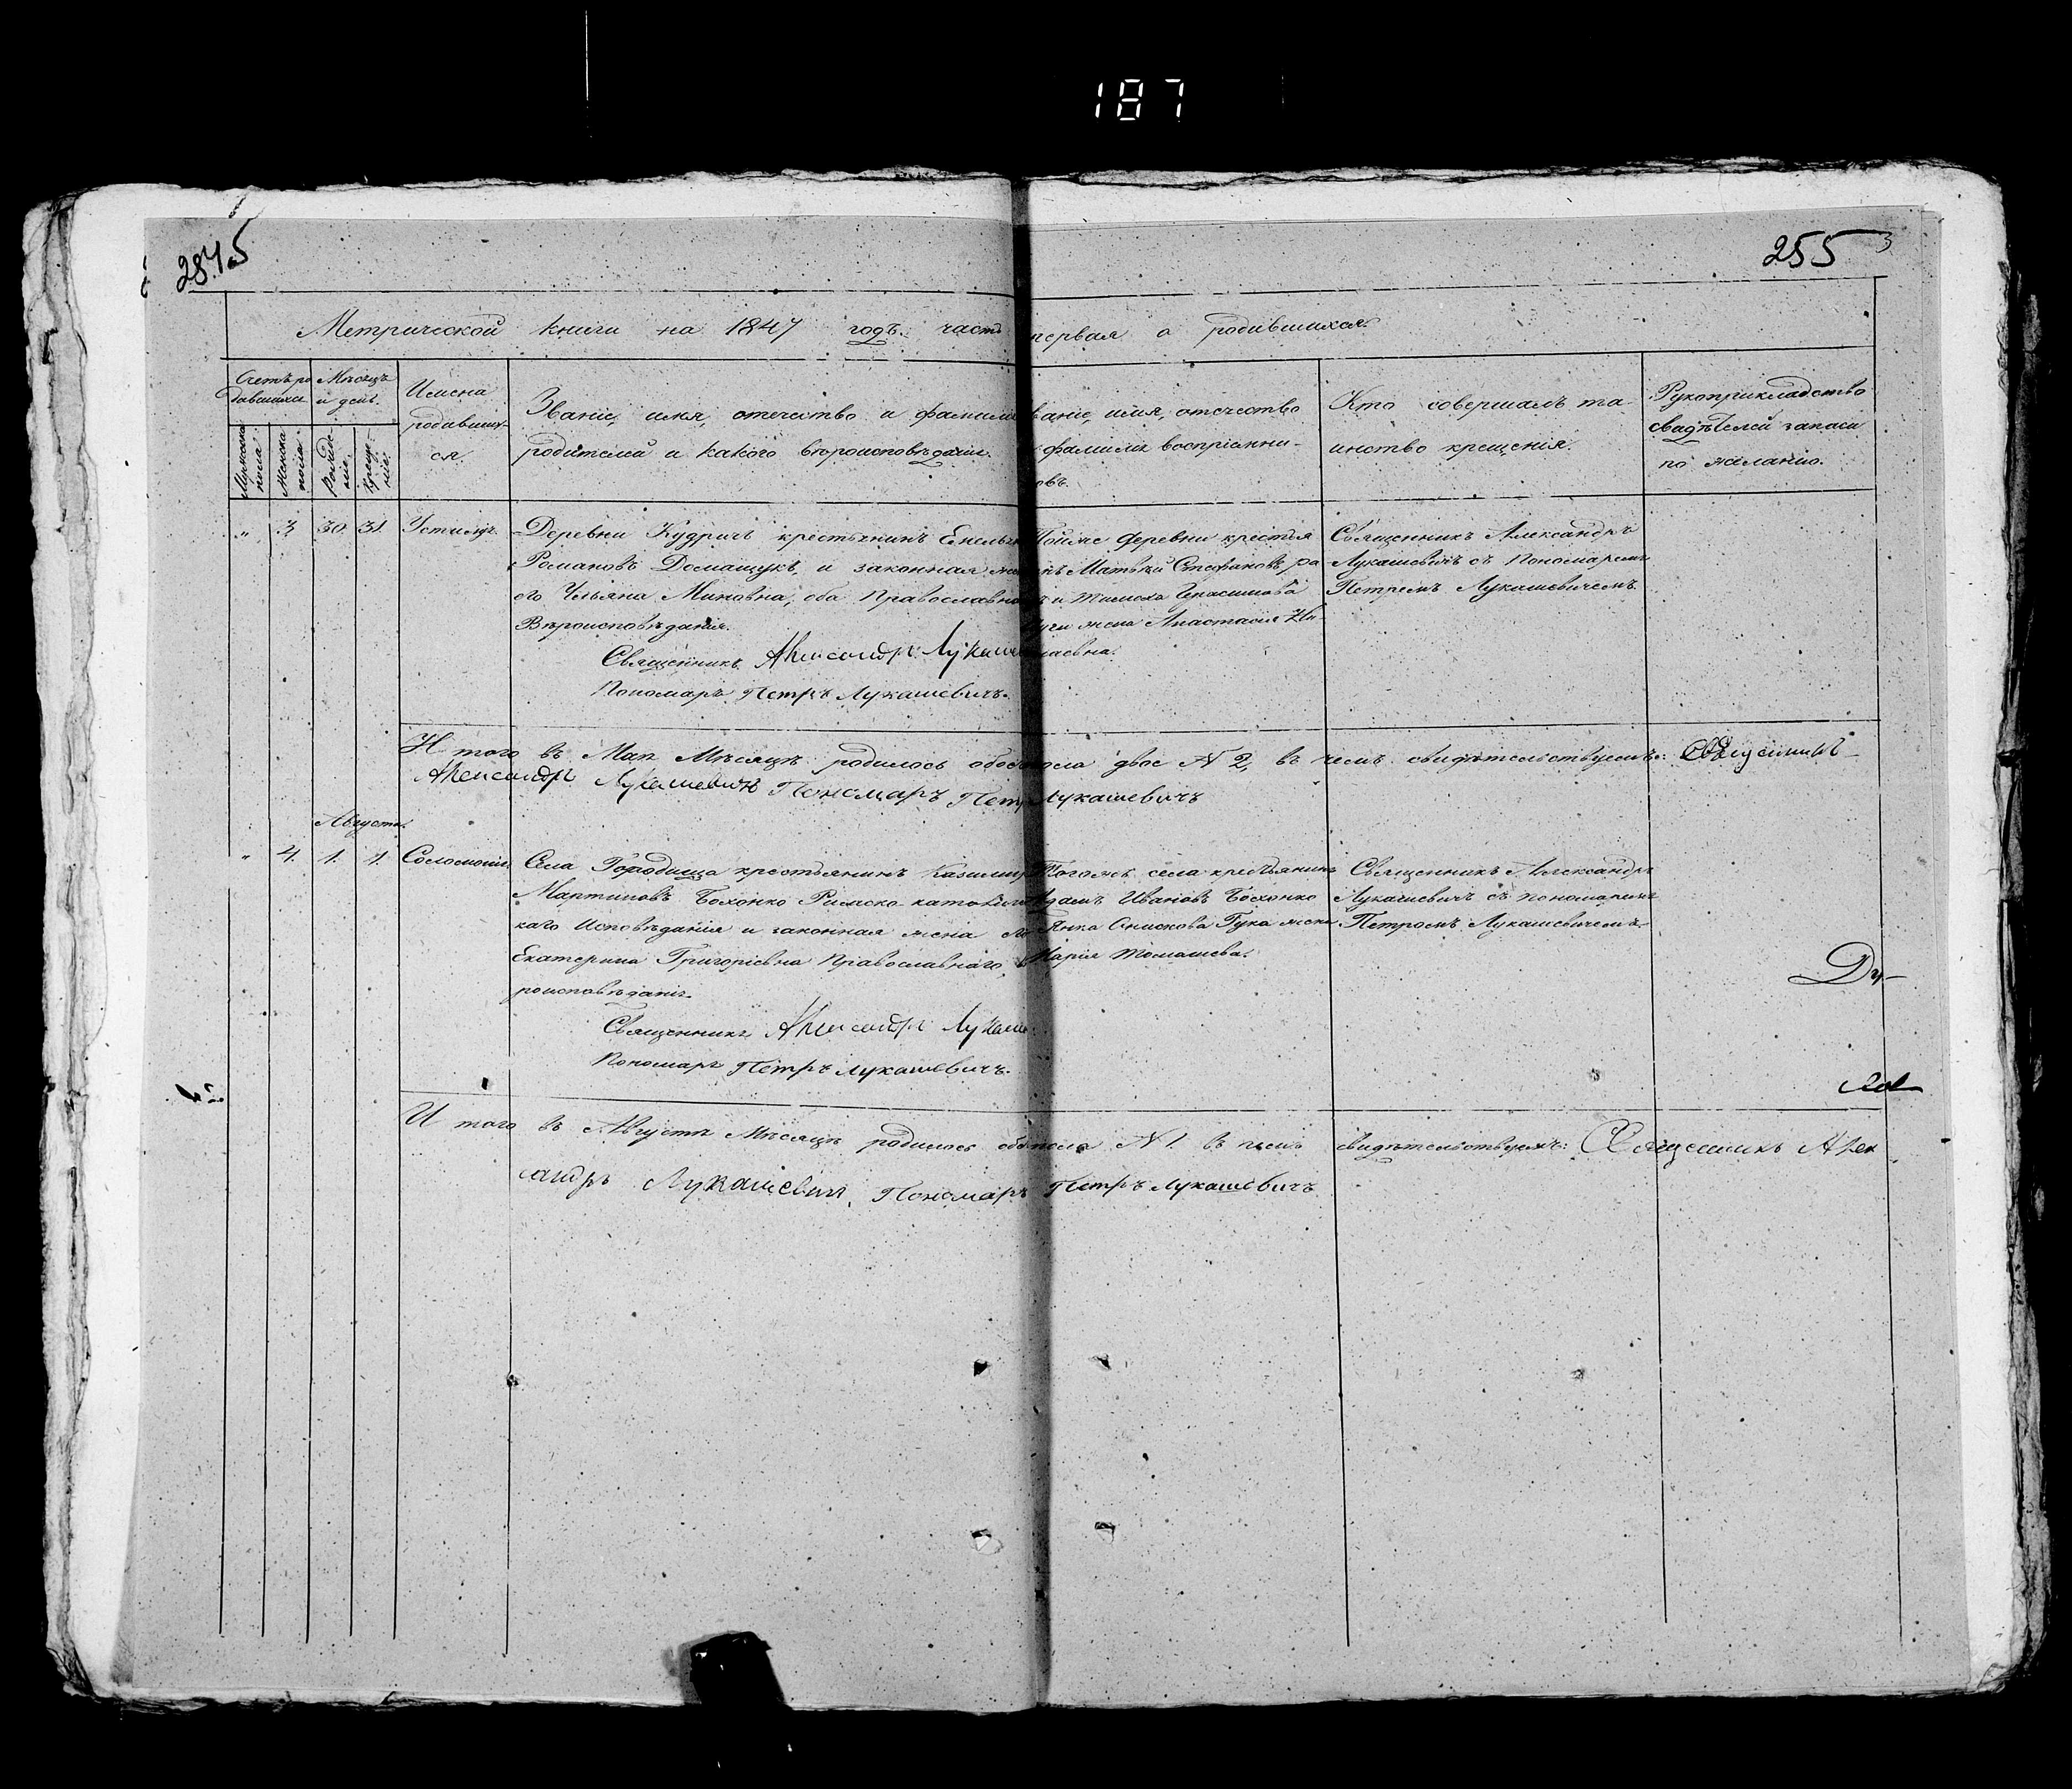 187
255
Метрической книги на 1847 годъ. часть первая о родившихся.
Счетъ ро
дившихся
Мѣсяцъ
и день.
Мужеска
пола.
Женска
пола.
Рожде-
ніе.
Креще-
ніе.
Имена
родивших-
ся
Званіе, имя, отечество и фамилия
родителей и какого вѣроисповѣданія.
званіе, имя, отечество
фамилия воспріемни-
овъ.
Кто совершалъ та-
инство крещенія.
Рукоприкладство
свидѣтелей записи
по желанію.
" 3 30. 31.
Деревни Кудричь крестьянинъ
Романовъ Домащукъ, и законная
его Ульяна Миновна, оба Православна
Вѣроисповѣданія.
Священникъ Александръ Лукаше
Пономаръ Петръ Лукашевичъ.
Тойже деревни крестья
нъ Матвѣй Стефановъ
жена Анастасія
Священникъ Александръ
Лукашевичъ съ Пономаремъ
Петромъ Лукашевичемъ.
И того въ Маи Мѣсяцѣ родилось обоего пола двое N 2, въ чемъ свидѣтельствуемъ: Священникъ
Александръ Лукашевичъ Пономаръ Петръ Лукашевичъ
Августъ.
" 4. 1. 1. Соломонія
Села Городища крестьянинъ Казимиръ
Мартиновъ Бохонко Римско-католичес
каго Исповѣданія и законная жена его
Екатерина Григоріевна Православнаго вѣ
роисповѣданія.
Священникъ Александръ Лукаше
Пономаръ Петръ Лукашевичъ.
Тогожъ села крестьянинъ
Адамъ Ивановъ Бохонко
Марія Томашева.
Священникъ Александръ
Лукашевичъ съ пономаремъ
Петромъ Лукашевичемъ.
И того въ Августѣ Мѣсяцѣ родилось обоего пола N 1. въ чемъ свидѣтельствуемъ: Священникъ Алек
сандръ Лукашевичъ, Пономаръ Петръ Лукашевичъ